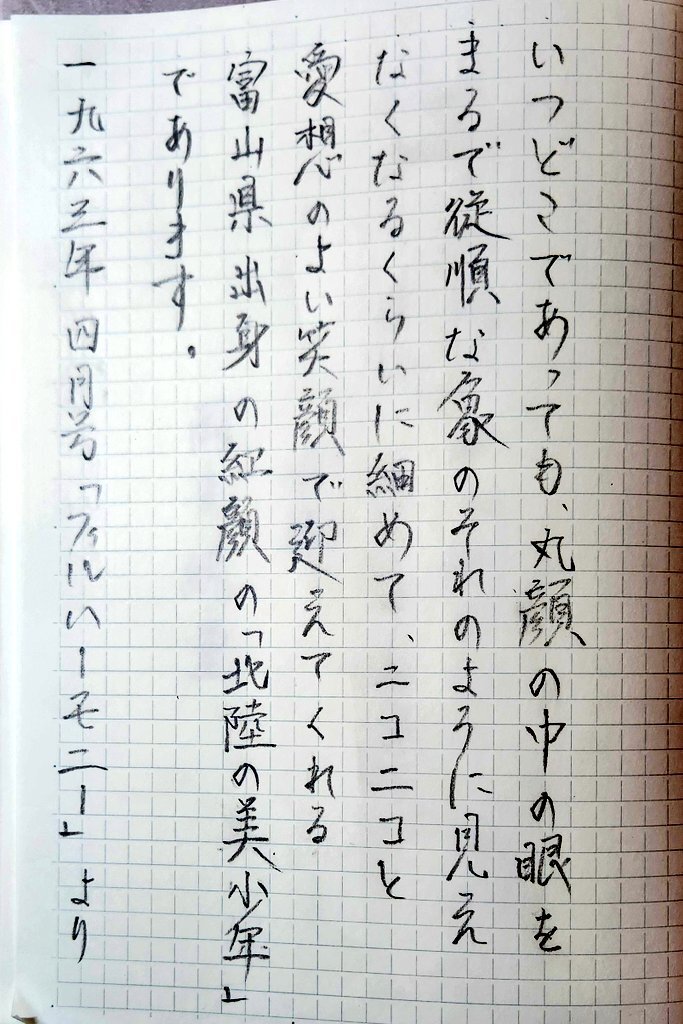 いつどこであっても、丸顔の中の眼を
まるで従順な象のそれのように見え
なくなるくらいに細めて、ニコニコと
愛想のよい笑顔で迎えてくれる
富山県出身の紅顔の「北陸の美少年」
であります。
一九六三年 四月号「フィルハーモニー」より